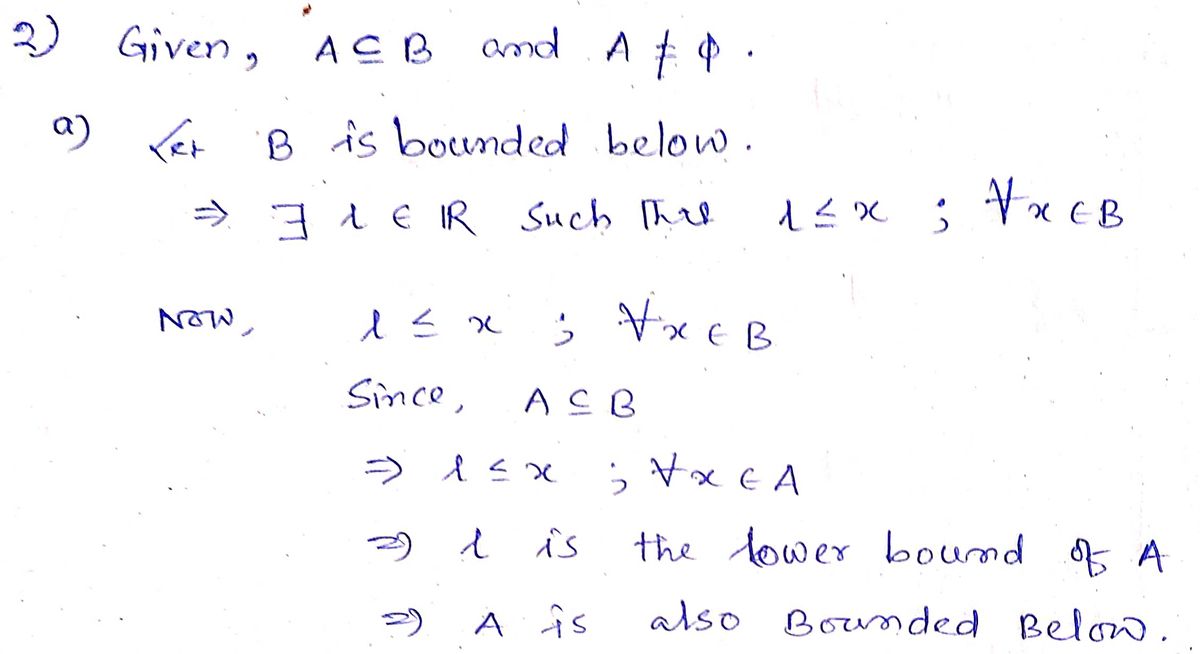 2) Given, A ⊆ B and A ≠ φ.
a) Let B is bounded below.
⇒ ∃ l ∈ ℝ such that l ≤ x ; ∀x ∈ B
Now, l ≤ x ; ∀x ∈ B
Since, A ⊆ B
⇒ l ≤ x ; ∀x ∈ A
⇒ l is the lower bound of A
⇒ A is also Bounded Below.